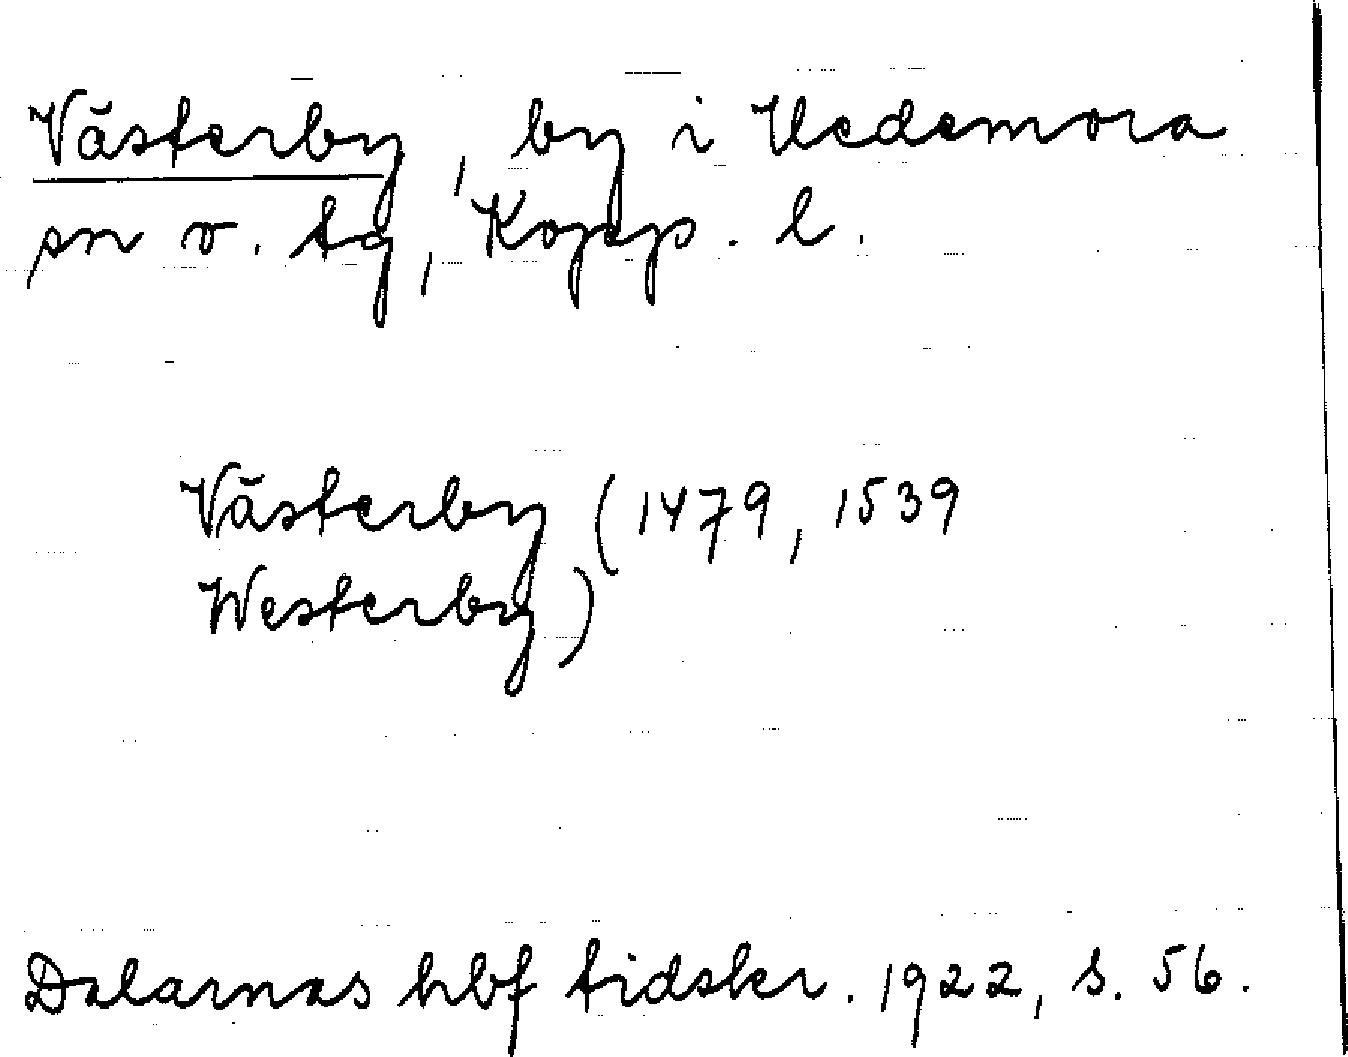 Västerby, by i Vedemora
sn o. tg, Kopp. l.
Västerby (1479, 1539
Westerby)
Dalarnas hbf tidskr. 1922, s. 56.